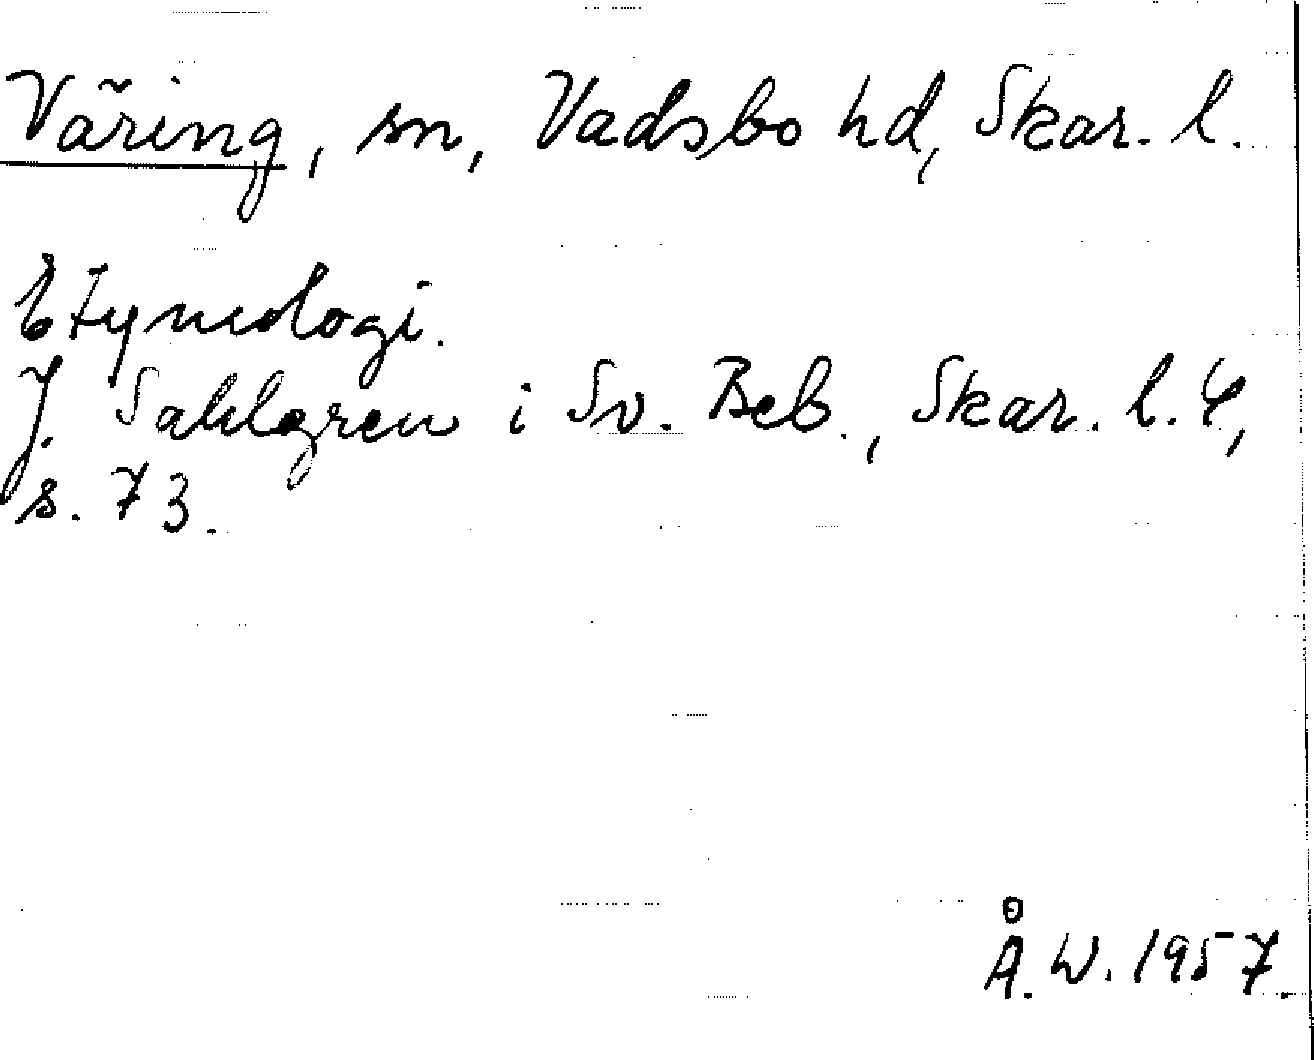 Väring, sn, Vadsbo hd, Skar. l.
Etymologi.
J. Sahlgren i Sv. Beb., Skar. l. 4,
s. 73.
Å. W. 1957.